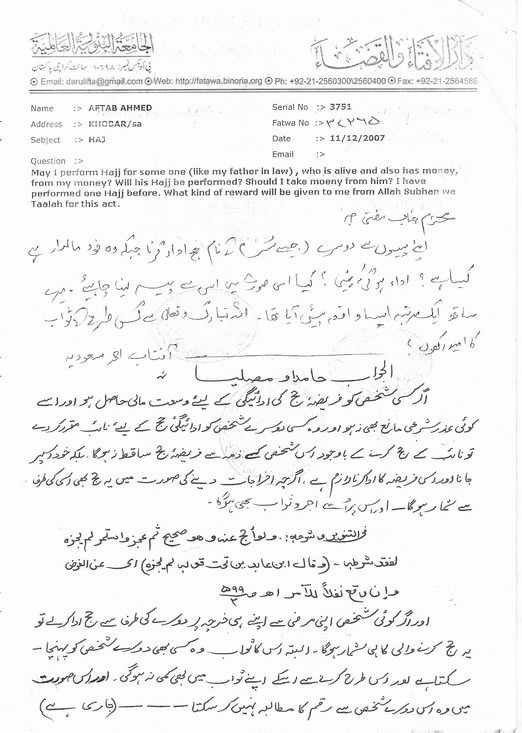 الجامعة البنورية العالمية
دار الافتاء والقضاء
Email: darulifta@gmail.com Web: http://fatawa.binoria.org Ph: +92-21-2560300\2560400 Fax: +92-21-2564586
Name :> AFTAB AHMED Serial No :> 3751
Address :> KHOBAR/sa Fatwa No :>
Sebject :> HAJ Date :> 11/12/2007
Email :>
Question :>
May I perform Hajj for some one (like my father in law) , who is alive and also has money,
from my money? Will his Hajj be performed? Should I take moeny from him? I have
performed one Hajj before. What kind of reward will be given to me from Allah Subhan we
Taalah for this act.
محترم جناب مفتی
اپنے پیسوں سے دوسرے (جیسے سسر) کے نام حج ادا کرنا جبکہ وہ خود مالدار ہے
کیسا ہے؟ ادا ہوگی یا نہیں؟ کیا اس صورت میں اس سے پیسہ لینا چاہئے۔ میرے
ساتھ ایک مرتبہ ایسا واقعہ پیش آیا تھا۔ اللہ تبارک وتعالی سے کس طرح کے ثواب
کا امید رکھوں؟
آفتاب احمد سعودیہ
الجواب حامدا و مصلیا
اگر کسی شخص کو فریضۂ حج کی ادائیگی کے لیے وسعت مالی حاصل ہو اور اسے
کوئی عذر شرعی مانع بھی نہ ہو اور وہ کسی دوسرے شخص کو ادائیگئ حج کے لیے نائب مقرر کردے
تو نائب کے حج کرنے کے باوجود اس شخص کے ذمہ سے فریضۂ حج ساقط نہ ہوگا۔ بلکہ خود اسپر
جانا اور اس فریضہ کا ادا کرنا لازم ہے، اگرچہ اخراجات دینے کی صورت میں یہ حج بھی اسی کی طرف
سے شمار ہوگا۔ اور اس پر اُسے اجر و ثواب بھی ہوگا۔
فی التنویر و شرحہ: ولو أحج عنہ وهو صحیح ثم عجز واستمر لم یجزہ
لفقد شرطہ۔ (وقال ابن عابدین تحت قولہ لم یجزہ) ای عن الفرض
وان وقع نفلاً للآمر اھ
اور اگر کوئی شخص اپنی مرضی سے اپنے ہی خرچہ پر دوسرے کی طرف سے حج ادا کرلے تو
یہ حج کرنے والی کا ہی شمار ہوگا۔ البتہ اس کا ثواب وہ کسی بھی دوسرے شخص کو پہنچا
سکتا ہے اور اس طرح کرنے سے اسکے اپنے ثواب میں بھی کمی نہ ہوگی۔ اور اس صورت
میں وہ اس دوسرے شخص سے رقم کا مطالبہ نہیں کر سکتا ——— (جاری ہے)